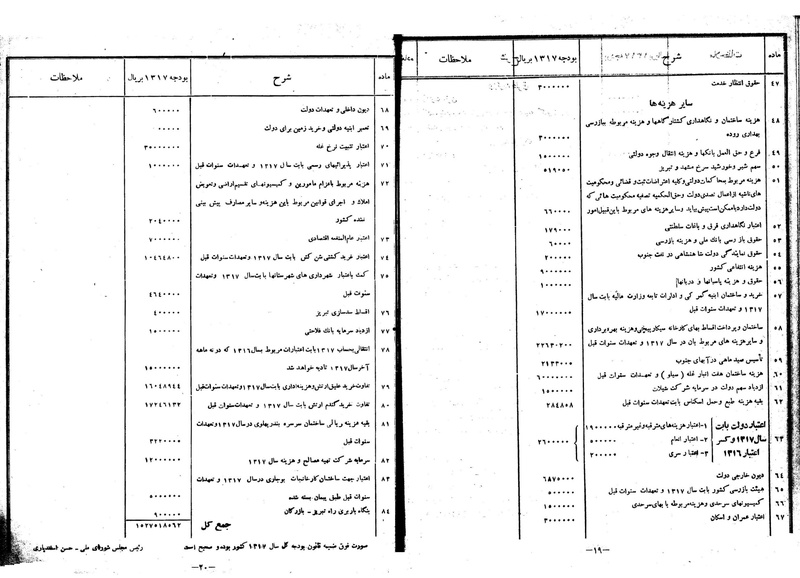 ماده
شرح
بودجه ۱۳۱۷ بریال
ملاحظات
۴۷ حقوق انتظار خدمت ۳۰۰۰۰۰۰
سایر هزینه‌ها
۴۸ هزینه ساختمان و نگاهداری کشتارگاهها و هزینه مربوطه ببازرسی
بهداری روده ۳۰۰۰۰۰۰
۴۹ فرع و حق العمل بانکها و هزینه انتقال وجوه دولتی ۱۵۰۰۰۰۰
۵۰ سهم شیر و خورشید سرخ مشهد و تبریز ۵۱۹۰۵۰
۵۱ هزینه مربوط بمحاکمات دولتی و کلیه اعتراضات ثبت و قضائی و محکومیت
های ناشیه از اعمال تصدی دولت و حق الحکمیه تصفیه محکومیت هائی که
دولت دارد یا ممکن است پیش بیاید و سایر هزینه های مربوط باین قبیل امور ۶۶۰۰۰۰
۵۲ اعتبار نگاهداری قرق و باغات سلطنتی ۱۷۹۰۰۰
۵۳ حقوق بازرسی بانک ملی و هزینه بازرسی ۶۰۰۰۰
۵۴ حقوق نمایندگی دولت شاهنشاهی در نفت جنوب ۲۰۰۰۰۰
۵۵ هزینه انتفاعی کشور ۹۰۰۰۰۰۰
۵۶ حقوق و هزینه پاسبانها و دربانها ۱۰۰۰۰۰۰
۵۷ خرید و ساختمان ابنیه گمرکی و ادارات تابعه وزارت مالیه بابت سال
۱۳۱۷ و تعهدات سنوات قبل ۱۷۰۰۰۰۰۰
۵۸ ساختمان و پرداخت اقساط بهای کارخانه سیگار پیچی و هزینه بهره برداری
و سایر هزینه های مربوط بان در سال ۱۳۱۷ و تعهدات سنوات قبل ۲۲۶۳۰۲۰۰
۵۹ تأسیس صید ماهی در آبهای جنوب ۲۱۳۳۰۰۰
۶۰ هزینه ساختمان هفت انبار غله (سیلو) و تعهدات سنوات قبل ۶۰۰۰۰۰۰۰
۶۱ ازدیاد سهم دولت در سرمایه شرکت شیلات ۱۵۰۰۰۰۰
۶۲ بقیه هزینه طبع و حمل اسکناس بابت تعهدات سنوات قبل ۲۸۴۸۰۸
۶۳ اعتبار دولت بابت سال ۱۳۱۷ و کسر اعتبار ۱۳۱۶
۱- اعتبار هزینه های مترقبه و غیر مترقبه ۱۹۰۰۰۰۰
۲- اعتبار انعام ۵۰۰۰۰۰
۳- اعتبار سری ۲۰۰۰۰۰
۲۶۰۰۰۰۰
۶۴ دیون خارجی دولت ۶۸۷۰۰۰۰
۶۵ هیئت بازرسی کشور بابت سال ۱۳۱۷ و تعهدات سنوات قبل ۵۰۰۰۰۰
۶۶ کمیسیونهای سرحدی و هزینه مربوطه با بهای سرحدی ۱۵۰۰۰۰۰
۶۷ اعتبار عمران و اسکان ۳۰۰۰۰۰۰
—۱۹—
ماده
شرح
بودجه ۱۳۱۷ بریال
ملاحظات
۶۸ دیون داخلی و تعهدات دولت ۶۰۰۰۰۰۰
۶۹ تعمیر ابنیه دولتی و خرید زمین برای دولت
۷۰ اعتبار تثبیت نرخ غله ۳۵۰۰۰۰۰۰
۷۱ اعتبار پذیرائیهای رسمی بابت سال ۱۳۱۷ و تعهدات سنوات قبل ۱۰۰۰۰۰۰
۷۲ هزینه مربوط باعزام مامورین و کمیسیونهای تقسیم اراضی و تعویض
املاک و اجرای قوانین مربوط باین هزینه و سایر مصارف پیش بینی
نشده کشور ۲۰۴۰۰۰۰
۷۳ اعتبار عام المنفعه اقتصادی ۷۰۰۰۰۰۰
۷۴ اعتبار خرید کشتی شن کش بابت سال ۱۳۱۷ و تعهدات سنوات قبل ۱۰۴۶۴۸۰۰
۷۵ کمک باعتبار شهرداری های شهرستانها بابت سال ۱۳۱۷ و تعهدات
سنوات قبل ۴۶۴۰۰۰۰
۷۶ اقساط سدسازی تبریز ۴۰۰۰۰۰
۷۷ ازدیاد سرمایه بانک فلاحتی ۱۵۰۰۰۰۰۰
۷۸ انتقالی بحساب ۱۳۱۷ بابت اعتبارات مربوط بسال ۱۳۱۶ که در نه ماهه
آخر سال ۱۳۱۷ تادیه خواهد شد ۱۵۰۰۰۰۰۰
۷۹ تفاوت خرید علیق ارتش و هزینه اداری بابت سال ۱۳۱۷ و تعهدات سنوات قبل ۱۶۰۴۸۹۴۴
۸۰ تفاوت خرید گندم ارتش بابت سال ۱۳۱۷ و تعهدات سنوات قبل ۱۷۲۴۶۱۳۲
۸۱ بقیه هزینه ریالی ساختمان سرسره بندر پهلوی در سال ۱۳۱۷ و تعهدات
سنوات قبل ۳۲۲۰۰۰۰
۸۲ سرمایه شرکت تهیه مصالح و هزینه سال ۱۳۱۷ ۱۲۰۰۰۰۰۰
۸۳ اعتبار جهت ساختمان کارخانجات بوجاری در سال ۱۳۱۷ و تعهدات
سنوات قبل طبق پیمان بسته شده ۵۰۰۰۰۰۰
۸۴ بنگاه باربری راه تبریز - بازرگان ۹۰۰۰۰۰
جمع کل ۱۵۲۷۵۱۸۵۶۲
صورت فوق ضمیمه قانون بودجه کل سال ۱۳۱۷ کشور بوده و صحیح است
رئیس مجلس شورای ملی - حسن اسفندیاری
—۲۰—